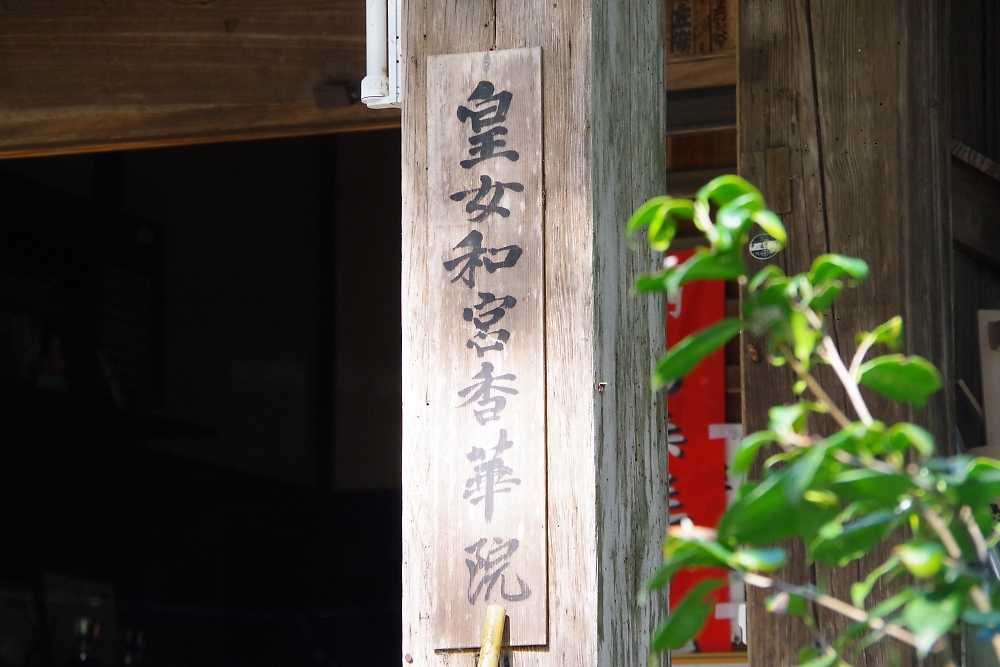 皇女和宮香華院